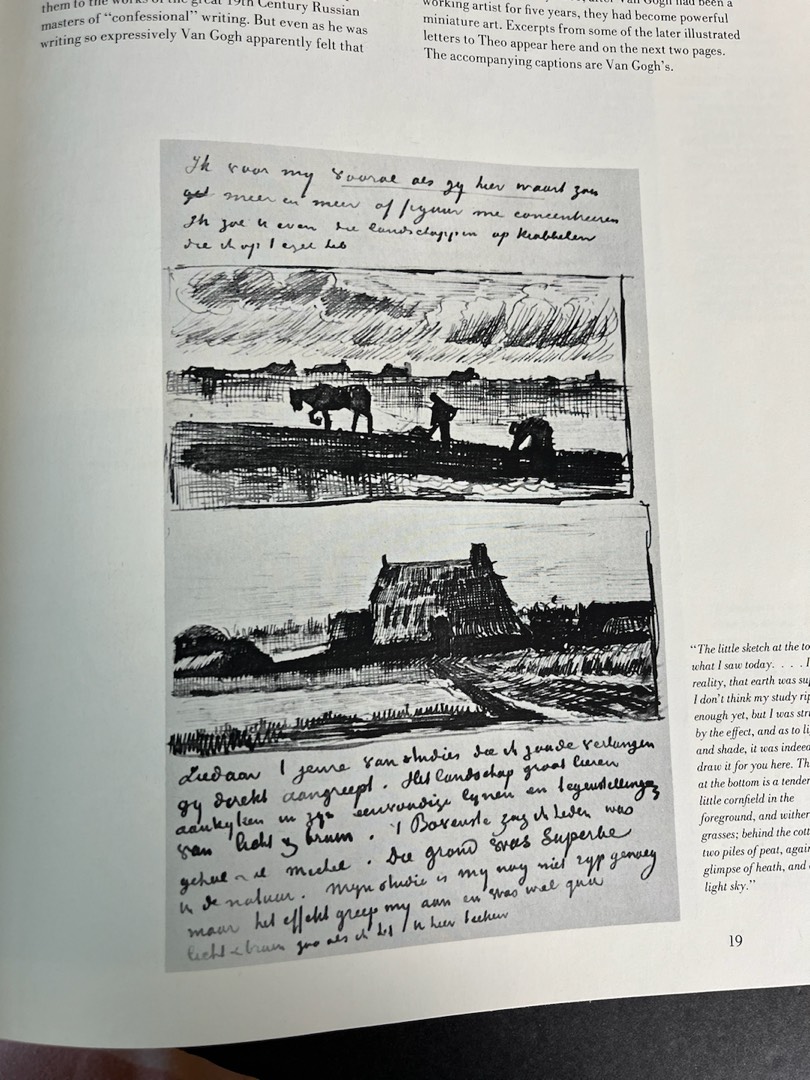 them to the works of the great 19th Century Russian
masters of “confessional” writing. But even as he was
writing so expressively Van Gogh apparently felt that
after Van Gogh had been a
working artist for five years, they had become powerful
miniature art. Excerpts from some of the later illustrated
letters to Theo appear here and on the next two pages.
The accompanying captions are Van Gogh’s.
Ik voor my vooral als gy hier waart zou
meer en meer op figuur me concentreeren
Ik zal u even die landschappen op krabbelen
die ik op 't ezel heb
Ziedaar 't genre van studies die ik zoude verlangen
gy direkt aangreept. Het landschap groot leeren
aankyken in zyn eenvoudige lynen en tegenstellingen
van licht & bruin. 't Bovenste zag ik heden was
geheel Michel. Die grond was Superbe
in de natuur. Myn studie is my nog niet ryp genoeg
maar het effekt greep my aan en was wel qua
licht & bruin zoo als ik het u hier teeken
“The little sketch at the to
what I saw today. . . . I
reality, that earth was su
I don’t think my study rip
enough yet, but I was str
by the effect, and as to li
and shade, it was indeed
draw it for you here. Th
at the bottom is a tender
little cornfield in the
foreground, and wither
grasses; behind the cott
two piles of peat, again
glimpse of heath, and
light sky.”
19